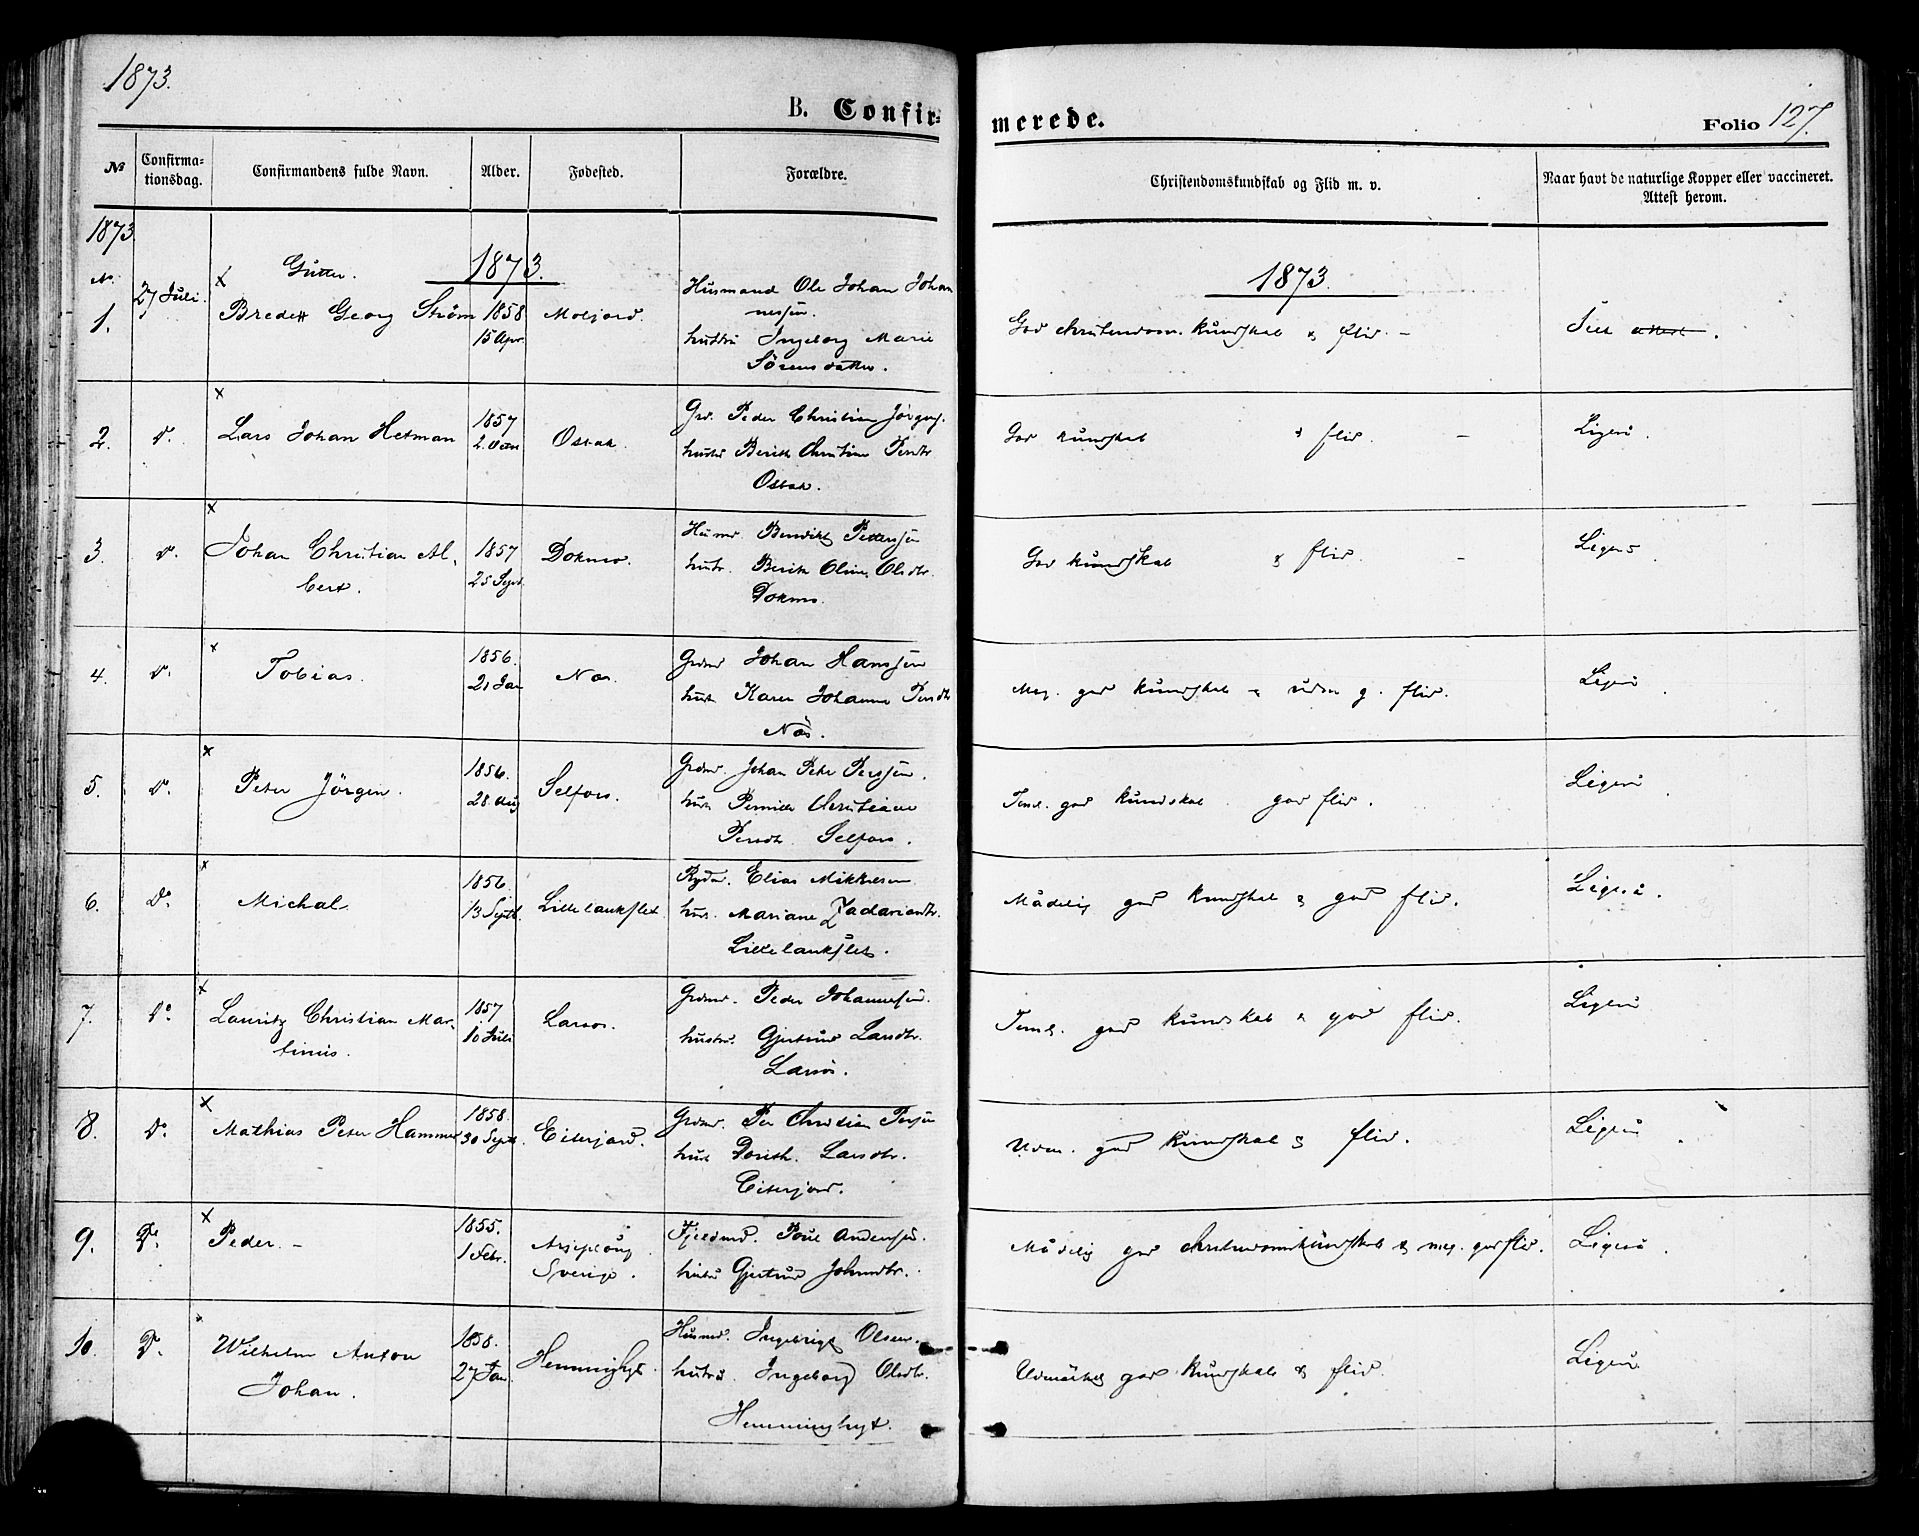 1873.
B. Confir-
merede.
Folio 127.
No
Confirma-
tionsdag.
Confirmandens fulde Navn.
Alder.
Fødested.
Forældre.
Christendomskundskab og Flid m. v.
Naar havt de naturlige Kopper eller vaccineret.
Attest herom.
1873
No.
Gutter.
1873.
1873.
1.
27 Juli.
Georg Strøm
1858
15 Apr.
Moljord.
Husmand Ole Johan Johan
nessen.
hustru Ingeborg Marie
Sörensdatter.
God christendom. kundskab & flid. -
attest.
2.
D.
Lars Johan Hetman
1857
Osbak.
Grd. Peder Christian
hustru Berith Christine Persdtr
Osbak.
God kundskab & flid. -
Ligeså.
3.
D.
Johan Christian Al-
bert.
1857
25 Sept.
Dokmo.
Husmd. Benedikt Pettersen
hustr. Berith Oline Olsdtr.
Dokmo.
God kundskab & flid. -
Ligeså
4.
D.
Tobias.
1856.
21 Jan
Næs.
Grdmd Johan Hanssen
hust Karen Johanna Persdtr
Näs.
Meg. god kundskab & g. flid.
Ligeså.
5.
D.
Peter Jörgen.
1856.
28 Aug
Selfors.
Grdmd. Johan Peter Perssen.
hust Pernille Christiane
Persdtr. Selfors.
Teml. god kundskab god flid.
Ligeså
6.
Do.
Michal
1856.
13 Septb.
Lillelankflet
Rydn. Elias Mikkelsen
hust. Mariane Zachariasdtr.
Lillelankflet.
Mådelig god kundskab & god flid.
Ligeså.
7.
Do.
Lauritz Christian Mar-
tinus.
1857
10 Juli
Larsos.
Grdmd. Peder Johannessen.
hustru. Gjertrud Larsdtr.
Larsos.
Teml. god kundskab & god flid.
Ligeså
8.
Do.
Mathias Peter Hammer
1858.
30 Septb.
Eiterjord.
Grdmd. Per Christian Persen
hust Dorith. Larsdtr.
Eiterjord.
Udm. god kundskab & flid.
Ligeså.
9.
Do.
Peder. -
1855.
1 Febr.
Arjeploug
Sverige.
Fjeldmd. Poul Andersen.
hustru Gjertrud Johnsdtr.
Mådelig god christendomskundskab & meg. god flid.
Ligeså.
10.
D.
Wilhelm Anton
Johan.
1858.
27 Jan.
Hemminghyt.
Husmd. Ingebrigt Olsen.
hustru Ingeborg Olsdtr.
Hemminghyt.
Udmärket god kundskab & flid.
Ligeså